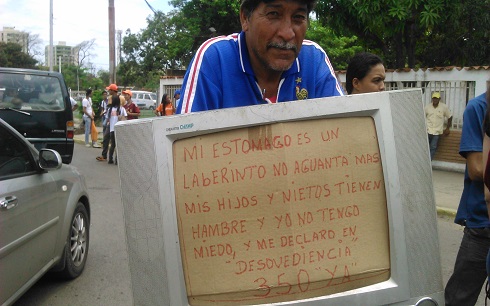 MI ESTOMAGO ES UN
LABERINTO NO AGUANTA MAS
MIS HIJOS Y NIETOS TIENEN
HAMBRE Y YO NO TENGO
MIEDO, Y ME DECLARO EN
"DESOVEDIENCIA"
350 "YA"